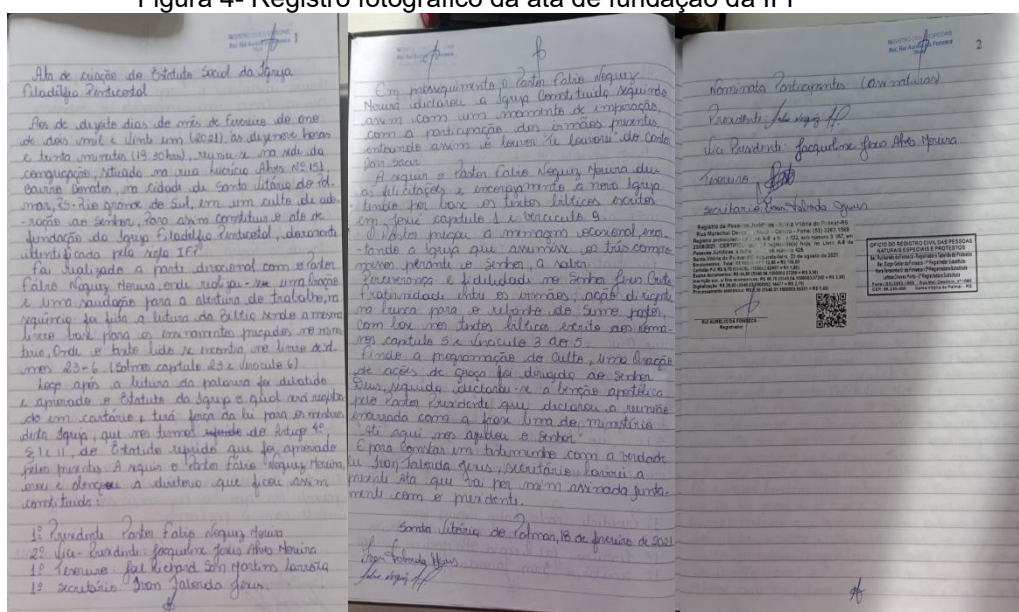 Figura 4- Registro fotográfico da ata de fundação da IPF
1
Ata de criação do Estatuto Social da Igreja
Filadélfia Pentecostal
Aos de dezoito dias do mês de Fevereiro do ano
de dois mil e vinte um (2021), às dezenove horas
e trinta minutos (19:30hrs), reuniu-se na sede da
congregação, situado na rua Lucrício Alves Nº 151,
Bairro Donatos, na cidade de Santa Vitória do Pal-
mar, RS- Rio grande do Sul, em um culto de ado-
ração ao Senhor, Para assim constituir o ato de
fundação da Igreja Filadélfia Pentecostal, doravante
identificada pela sigla IFP.
Foi realizado a parte devocional com o Pastor
Fabio Noguez Moreira, onde realizou-se uma Oração
e uma saudação para a abertura do trabalho, na
sequência foi feita a leitura da Bíblia sendo a mesma
livro base para os ensinamentos pregados no minis-
tério, Onde o texto lido se encontra no livro de Sal-
mos 23-6. (Salmos capitulo 23 e versículo 6)
Logo após a leitura da palavra foi debatido
e aprovado o Estatuto da Igreja o qual será registra-
do em cartório e terá força da lei para os membros
desta Igreja, que nos termos do Artigo 4º
§ I e II, do Estatuto que foi aprovado
pelos presentes. A seguir o Pastor Fábio Noguez Moreira,
orou e abençoou a diretoria que ficou assim
constituida:
1º Presidente: Pastor Fabio Noguez Moreira
2º Vice-Presidente: Jacqueline Jesus Alves Moreira
1º Tesoureiro: Joel Richard San Martins
1º secretário: Ivan Jesus.
Em prosseguimento o Pastor Fabio Noguez
Moreira declarou a Igreja Constituída seguindo
assim com um momento de
com a participação dos irmãos presentes,
entoando assim o louvor "Te louvarei" do Cantor
A seguir o Pastor Fabio Noguez Moreira deu
as felicitações e encorajamento a nova Igreja
tendo por base os textos bíblicos escritos
em Josué capitulo 1 e versículo 9.
O Pastor pregou a mensagem ocasional, exor-
tando a Igreja que assumisse os três compro-
missos perante o Senhor, a saber
Perseverança e fidelidade no Senhor Jesus Cristo
Fraternidade entre os irmãos; ação
na busca para o rebanho do Sumo pastor,
com base nos textos bíblicos escrito aos Roma-
nos capitulo 5 e versículo 3 ao 5.
Finda a programação do Culto, uma Oração
de ações de graça foi dirigida ao Senhor
Deus, seguida declarou-se a benção apostólica
pelo Pastor Presidente que declarou a reunião
encerrada com a frase lema do ministério
"Até aqui nos ajudou o Senhor."
E para constar em testemunho com a verdade
Eu Ivan Jesus, secretário lavrei a
presente ata que vai por mim assinada junta-
mente com o presidente.
Santa Vitória do Palmar, 18 de fevereiro de 2021
2
Nominata Participantes (assinaturas)
Presidente:
Vice Presidente: Jacqueline Jesus Alves Moreira
Tesoureiro:
secretário: Ivan Jesus
RUI AURELIO DA FONSECA
Registrador
OFICIO DO REGISTRO CIVIL DAS PESSOAS
NATURAIS ESPECIAIS E PROTESTOS